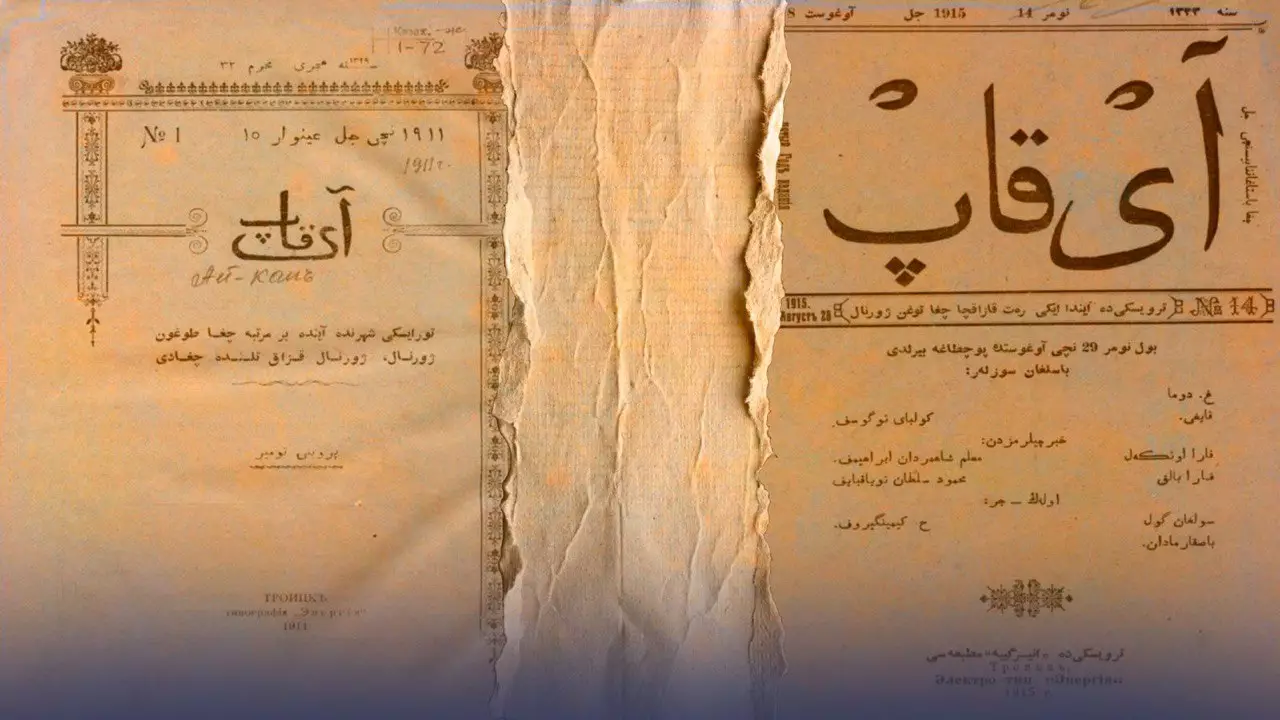 1-72
№ 1
١٩١١ نچی جل عینوار ١٥
1911 г.
آی قاپ
Ай-капъ
تورایسکی شهرنده آینده بر مرتبه چغا طوغون
ژورنال، ژورنال قزاق تلنده چغادی
ТРОИЦКЪ
типографія „Энергія“
1911
سنه ١٣٣٣
نومر 14
1915 جل
آوغوست 8
آی قاپ
1915.
Августъ 28
ترویسکی‌ده آیندا ایکی رەت قازاقچا چغا توغن ژورنال
№ 14
بول نومر 29 نچی آوغوستە پوچطاغه بیرلدی
باسلغان سوزلەر:
غ. دوما
قایغی. کولبای توگوسف.
خبرچیلرمزدن:
قارا اوتكەل معلم شاهمردان ابراهیمف.
قارا بالق محمود سلطان
اولڭ — جر:
سولغان گول ح کیمینگیروف.
باصقارمادان.
ترویسکی‌ده «اینیرگییه» مطبعه‌سی
Троицкъ,
Электро тип. «Энергія»
1915 г.